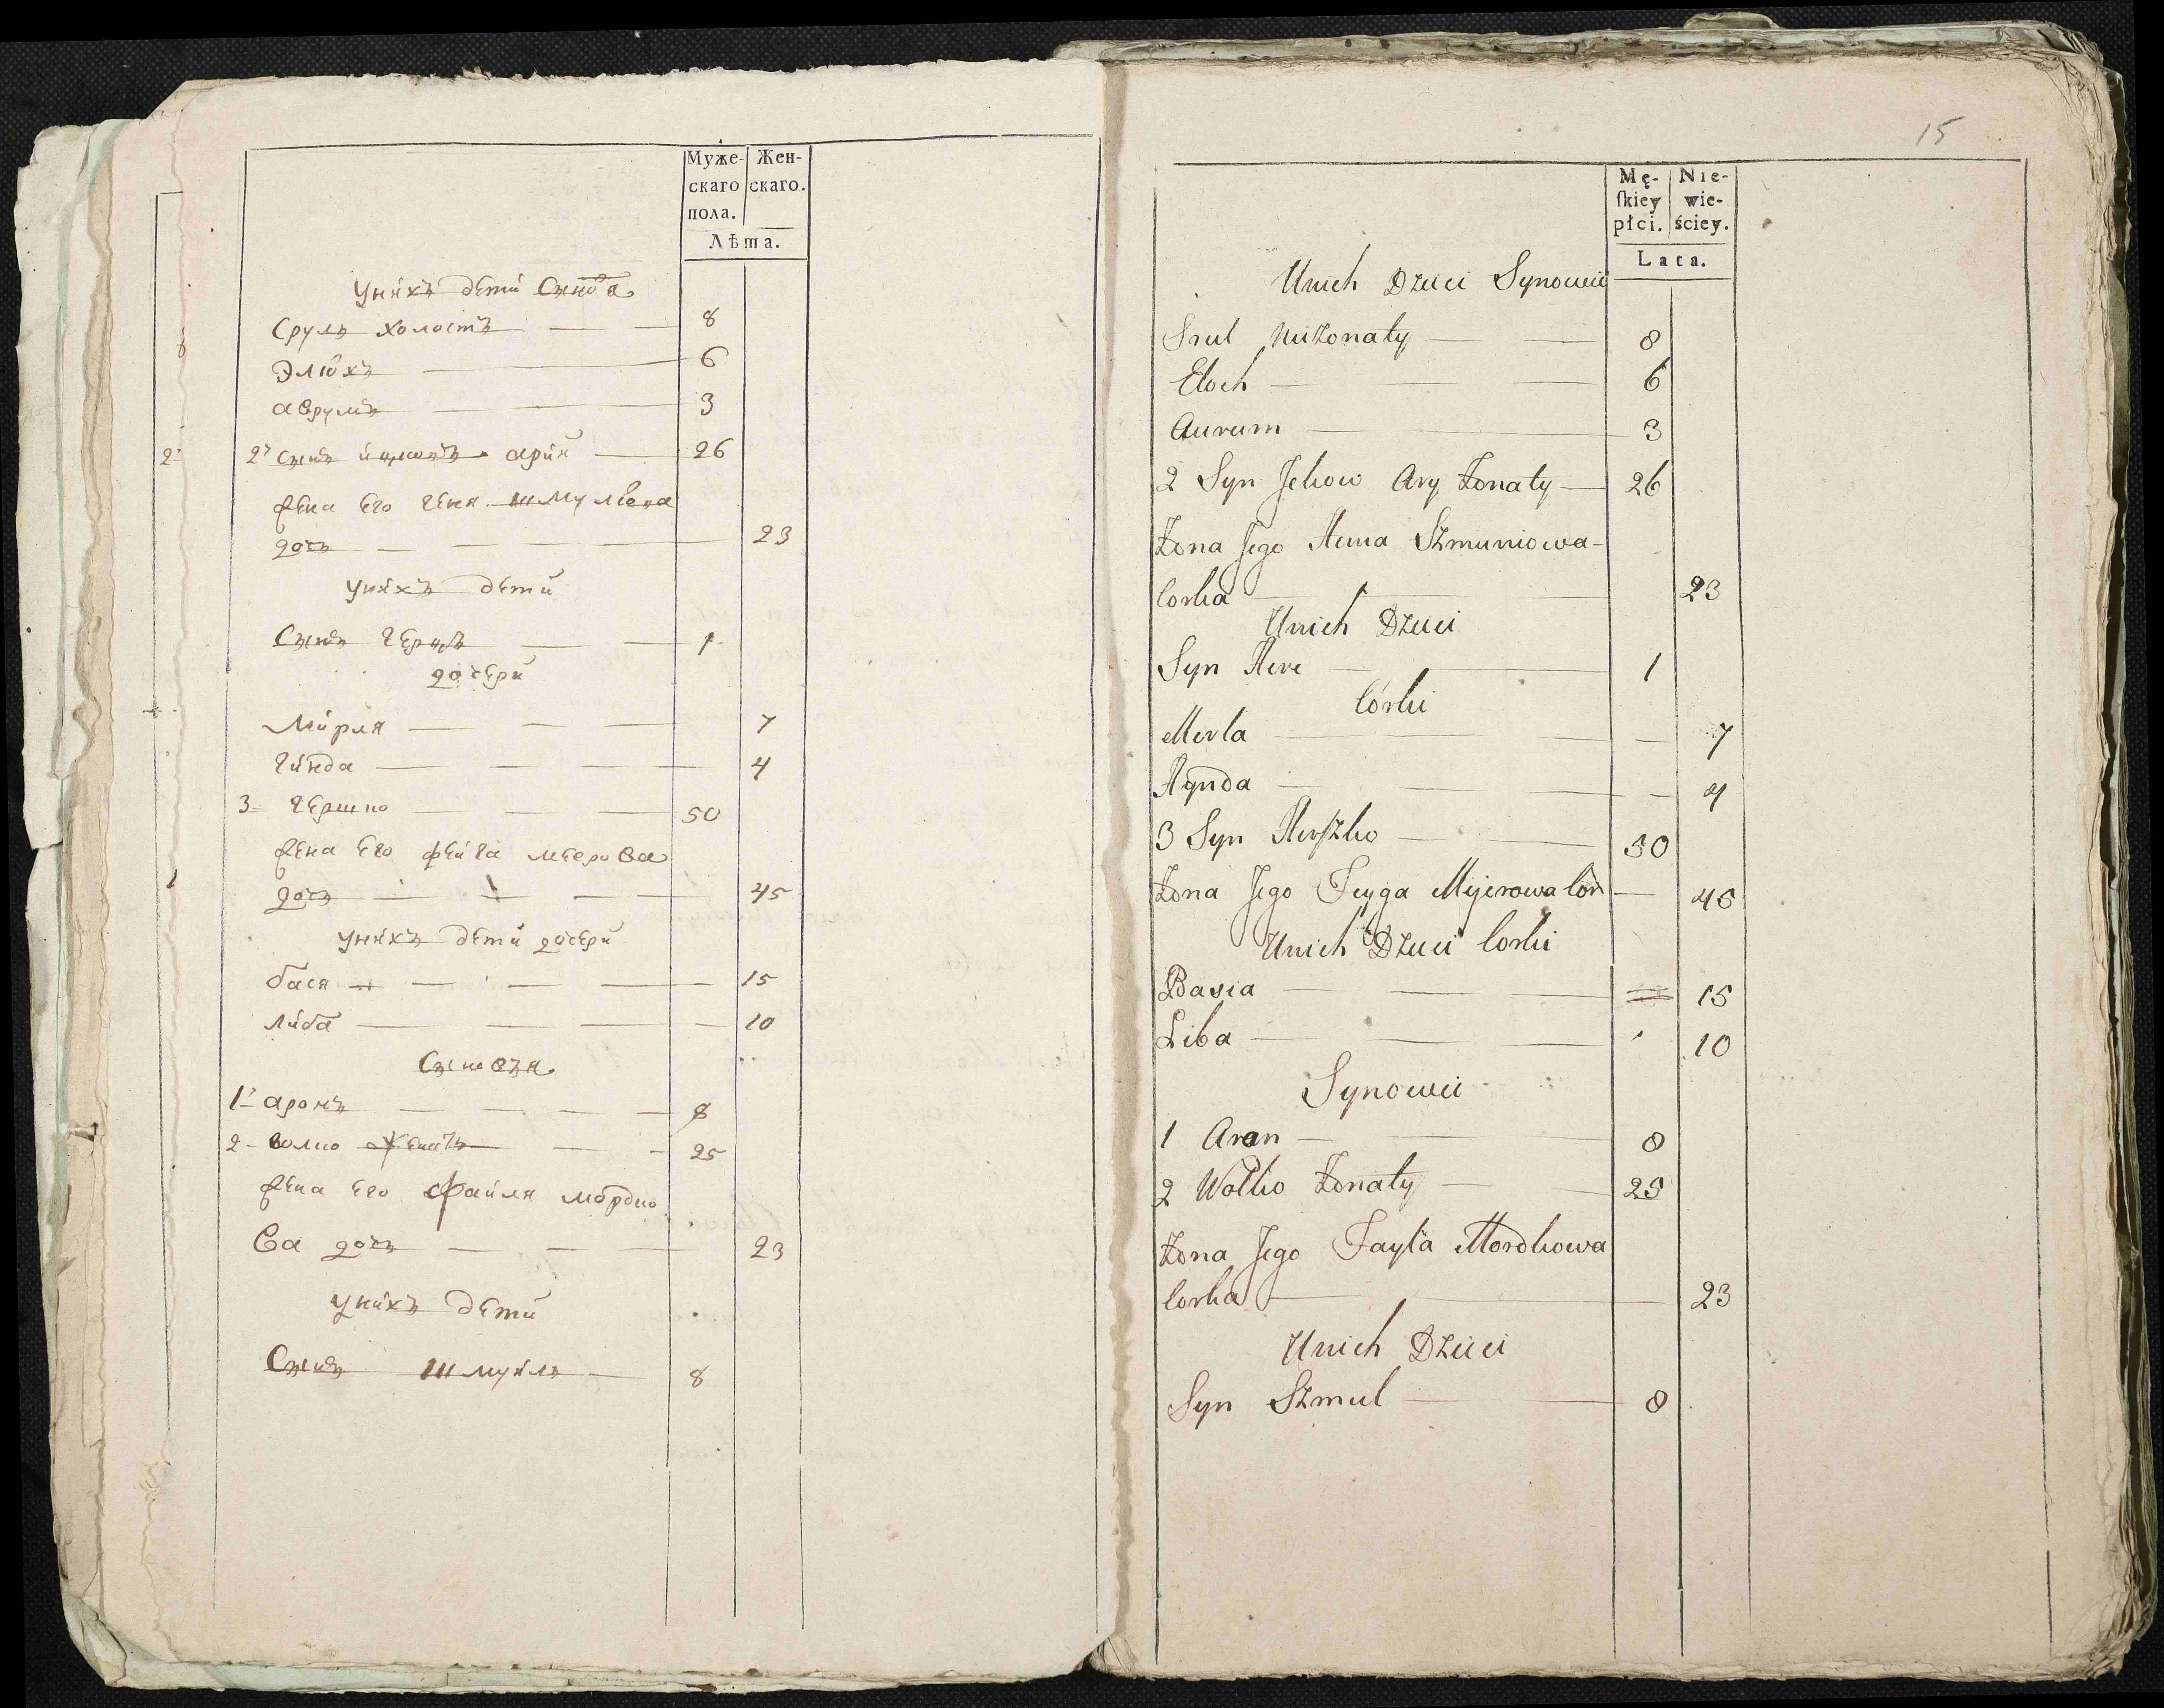 Муже-
скаго
пола.
Жен-
скаго.
Лѣта.
унихъ дети Сынва
Сруль холостъ 8
Элиохъ 6
аврумъ 3
2 2 Сынъ арии 26
жена его геня шмулева
дочь 23
унихъ дети
Сынъ герцъ 1
дочери
Мирля 7
гинда 4
3 гершко 50
жена его фейга меерова
дочь 45
унихъ дети дочери
бася 15
либа 10
Сыновя
1 аронъ 8
2 волко женатъ 25
жена его файля мордко
ва дочь 23
унихъ дети
Сынъ шмуйль 8
15
Mę-
ſkiey
płci.
Nie-
wie-
ściey.
Lata.
Unich Dzieci Synowie
Srul Nieżonaty 8
Eloch 6
Aurum 3
2 Syn Jckow Ary Żonaty 26
Żona Jego Henia Szmuniowa
Corka 23
Unich Dzieci
Syn Herc 1
Córki
Merla 7
Hynda 4
3 Syn Herszko 50
Żona Jego Feyga Mijerowa Cór 45
Unich Dzieci Corki
Basia 15
Liba 10
Synowie
1 Aran 8
2 Wolko Żonaty 25
Żona Jego Fayla Mordkowa
Corka 23
Unich Dzieci
Syn Szmul 8